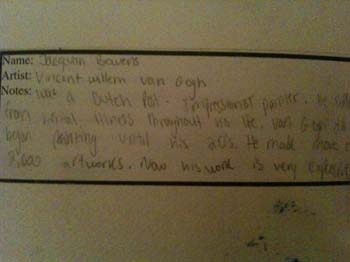 Name: Jacquan Bowens
Artist: Vincent willem van Gogh
Notes: was a Dutch Post-Impressionist painter. He
from illness throughout his life. van Gogh
began painting until his 20's. He made more
artworks. Now his work is very